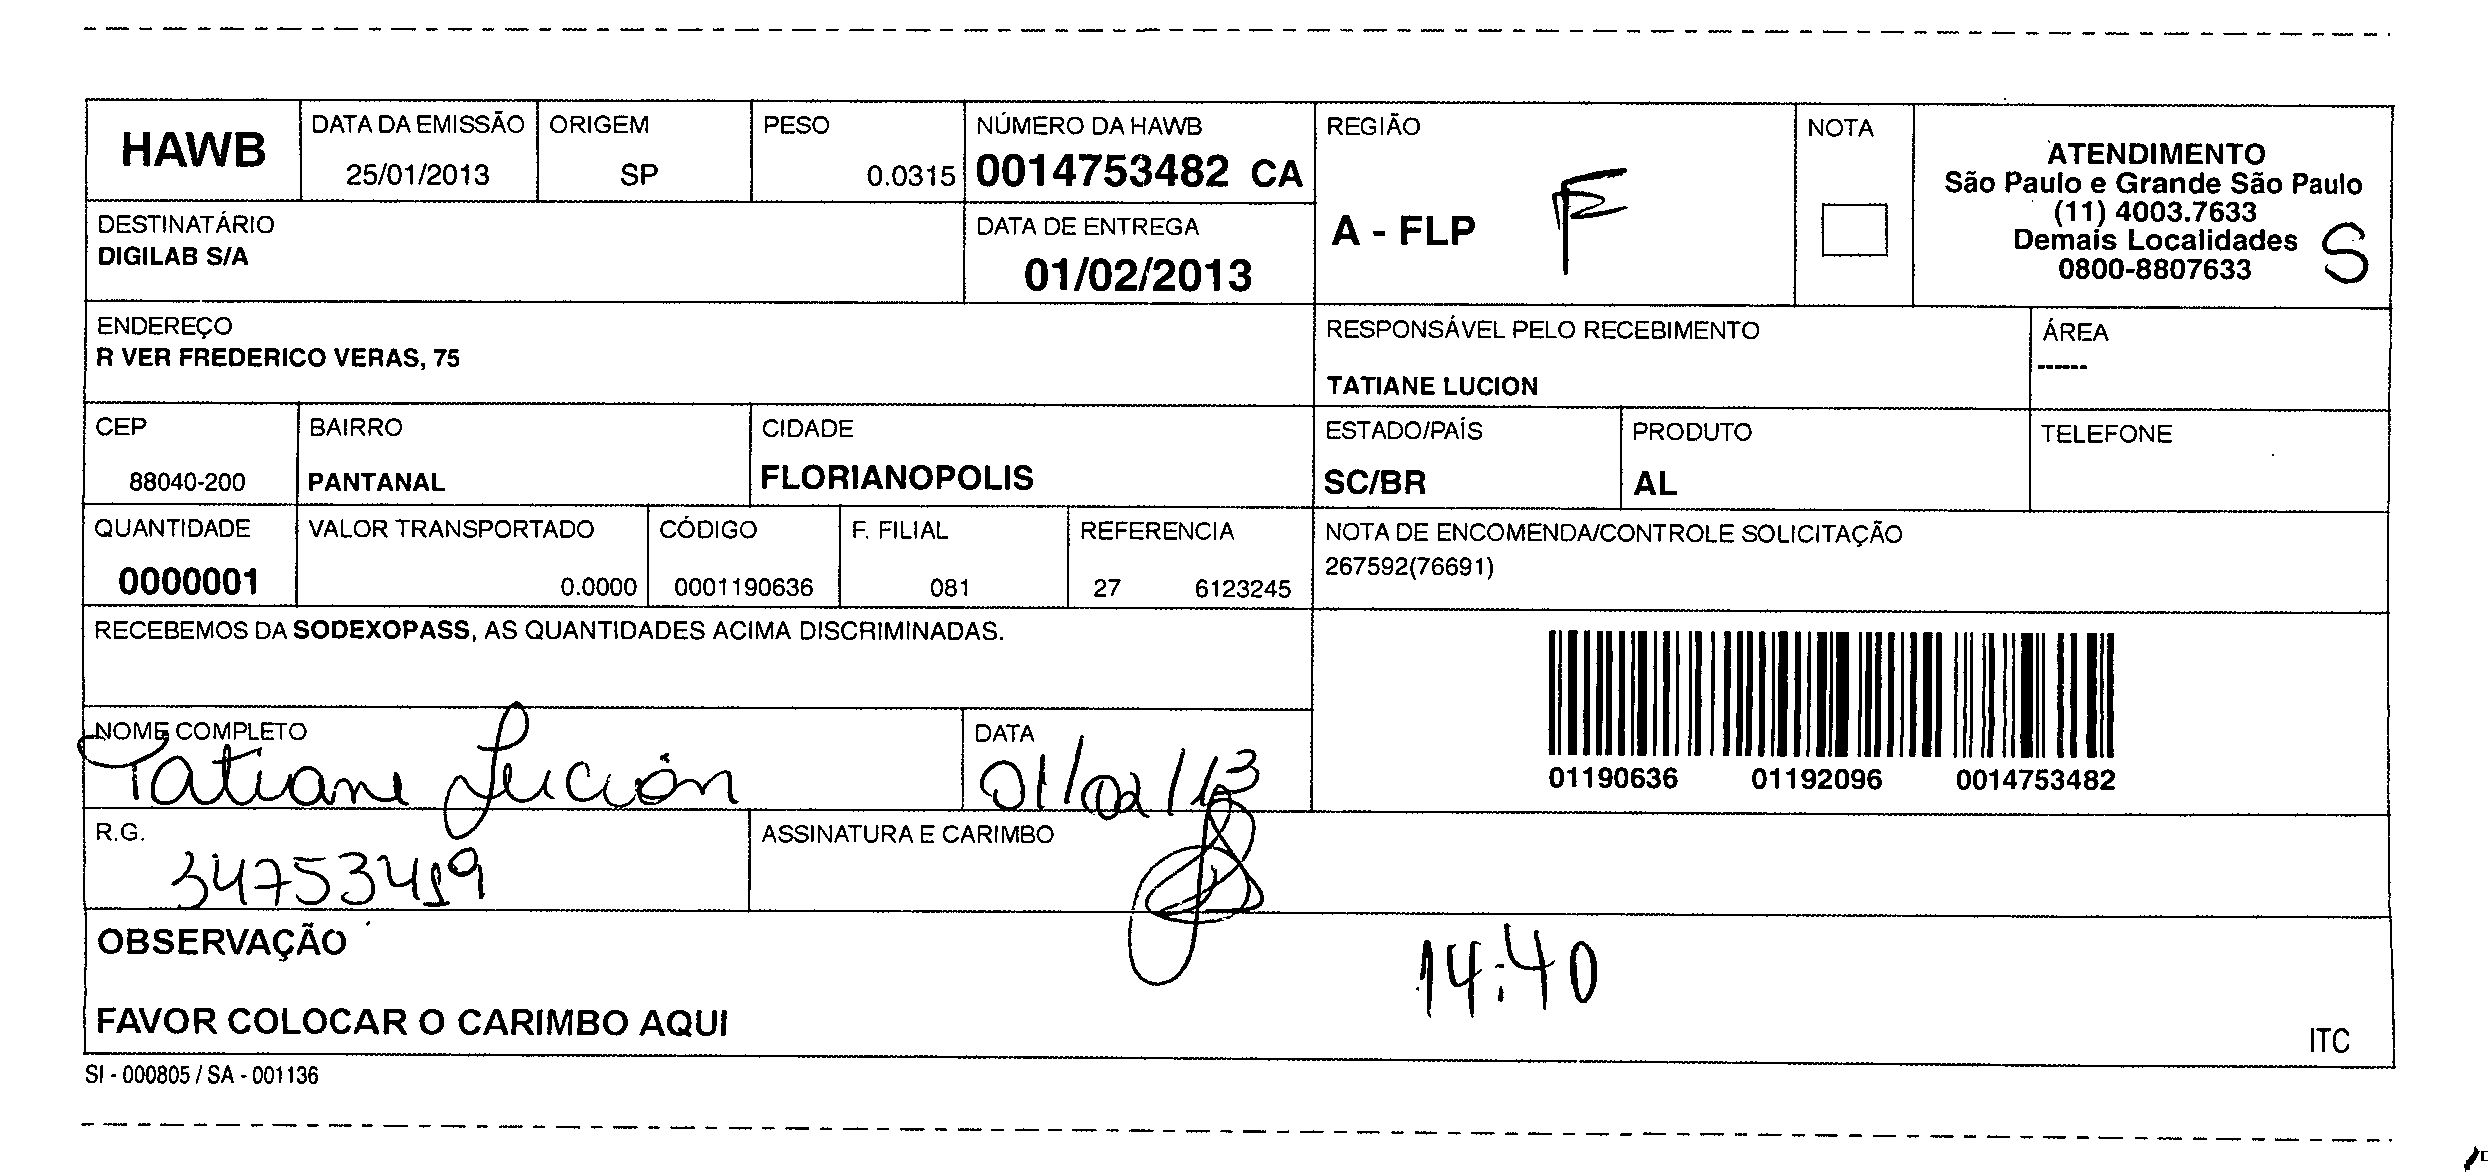 HAWB
DATA DA EMISSÃO
25/01/2013
ORIGEM
SP
PESO
0.0315
NÚMERO DA HAWB
0014753482 CA
REGIÃO
A - FLP
F
NOTA
ATENDIMENTO
São Paulo e Grande São Paulo
(11) 4003.7633
Demais Localidades
0800-8807633
S
DESTINATÁRIO
DIGILAB S/A
DATA DE ENTREGA
01/02/2013
ENDEREÇO
R VER FREDERICO VERAS, 75
RESPONSÁVEL PELO RECEBIMENTO
TATIANE LUCION
ÁREA
------
CEP
88040-200
BAIRRO
PANTANAL
CIDADE
FLORIANOPOLIS
ESTADO/PAÍS
SC/BR
PRODUTO
AL
TELEFONE
QUANTIDADE
0000001
VALOR TRANSPORTADO
0.0000
CÓDIGO
0001190636
F. FILIAL
081
REFERENCIA
27 6123245
NOTA DE ENCOMENDA/CONTROLE SOLICITAÇÃO
267592(76691)
RECEBEMOS DA SODEXOPASS, AS QUANTIDADES ACIMA DISCRIMINADAS.
01190636 01192096 0014753482
NOME COMPLETO
Tatiane Lucion
DATA
01/02/13
R.G.
34753419
ASSINATURA E CARIMBO
OBSERVAÇÃO
14:40
FAVOR COLOCAR O CARIMBO AQUI
ITC
SI - 000805 / SA - 001136